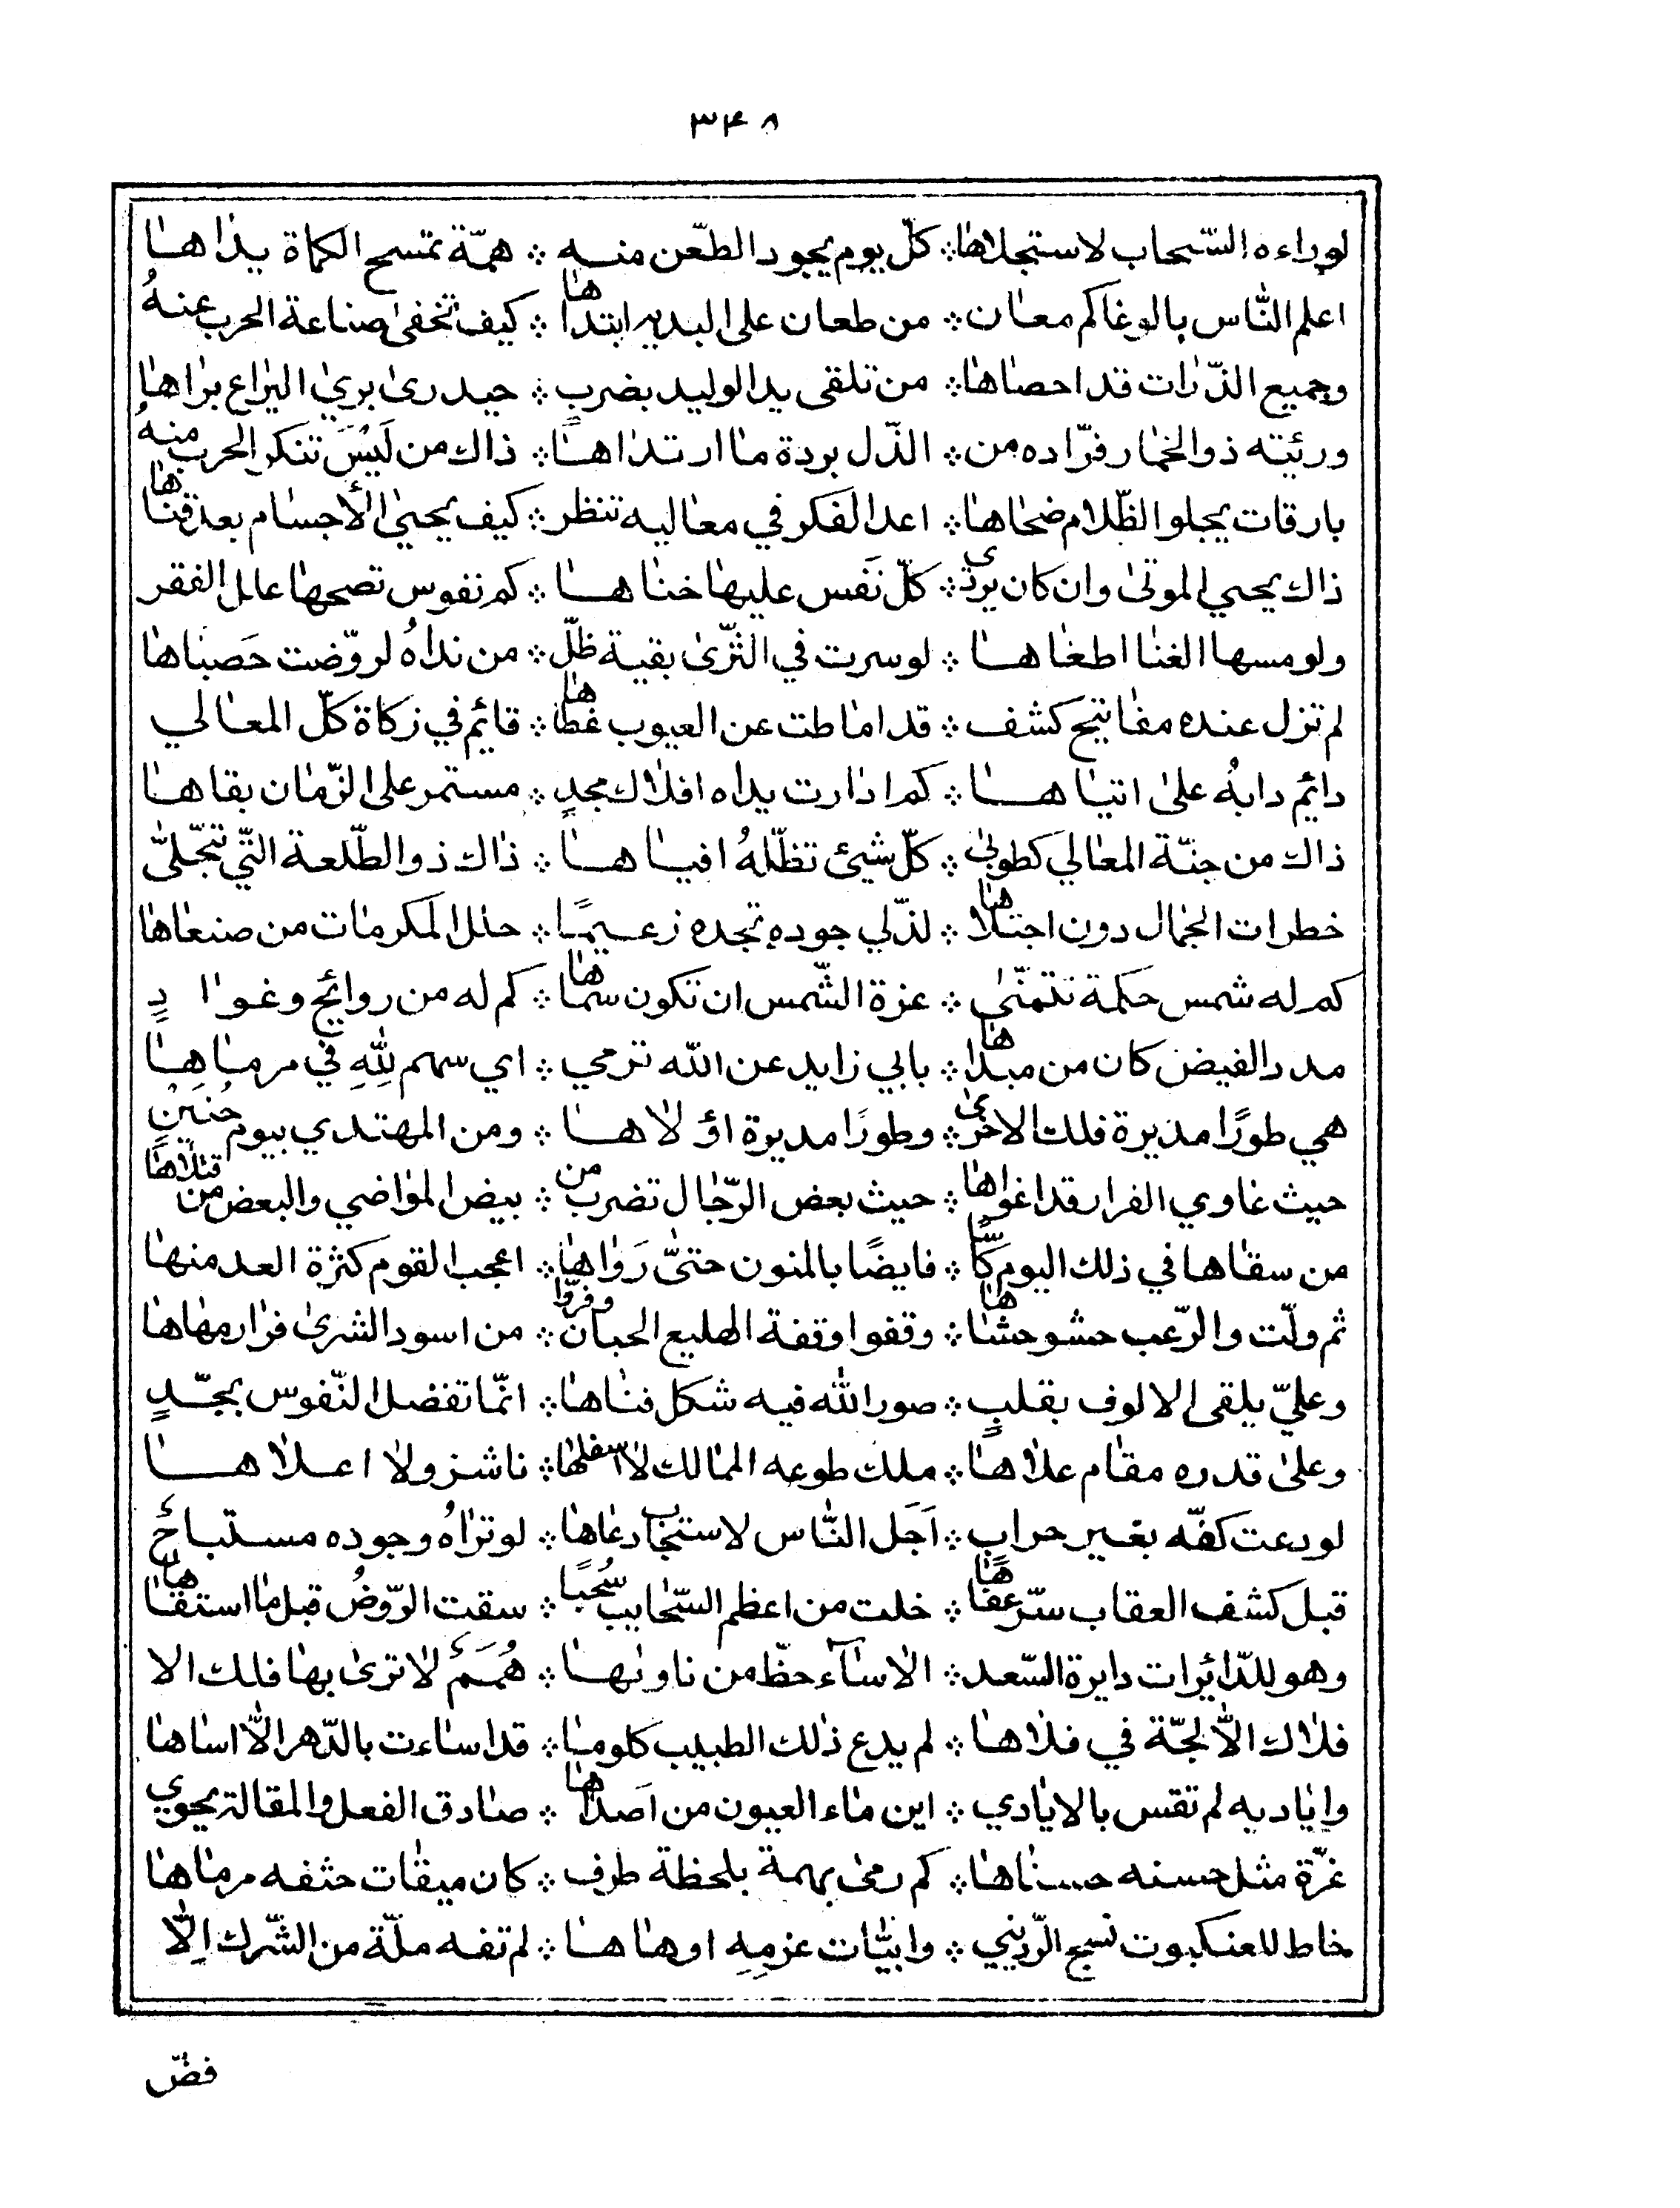 ٣۴٨
لو راءه السّحاب لاستجلاها ⁘ كلّ يوم يجود الطّعن منه ⁘ همّة تمسح الكماة يداها
اعلم النّاس بالوغا كم معان ⁘ من طعان على البديه ابتداها ⁘ كيف تخفىٰ صناعة الحرب عنهُ
وجميع الذّرات قد احصاها ⁘ من تلقى يد الوليد بضربٍ ⁘ حيدرىٰ بري اليراع براها
ورئيته ذو الخمار فرّاده من ⁘ الذّل بردة ما ارتداها ⁘ ذاك من لَيْسَ تنكر الحرب منهُ
بارقات يجلو الظّلام ضحاها ⁘ اعد الفكر في معاليه تنظر ⁘ كيف يحيىٰ الأجسام بعد فناها
ذاك يحيي الموتىٰ وان كان يردى ⁘ كلّ نَفس عليها خناها ⁘ كم نفوس تصحها علل الفقر
ولو مسها الغنا اطغاها ⁘ لو سرت في الثّرىٰ بقية ظلّ ⁘ من نداهُ لروّضت حَصباها
لم تزل عنده مفاتيح كشف ⁘ قد اماطت عن العيوب غطاها ⁘ قايم في زكاة كلّ المعالي
دائم دابهُ علىٰ اتياها ⁘ كم ادارت يداه افلاك مجدٍ ⁘ مستمر على الزّمان بقاها
ذاك من جنّة المعالي كطوبىٰ ⁘ كلّ شيئ تظلّلهُ افياها ⁘ ذاك ذو الطّلعة التّي تتجّلىّ
خطرات الجمال دون اجتلاها ⁘ لذ لي جوده تجده زعيمًا ⁘ حلل المكرمات من صنعاها
كم له شمس حكمة تتمنّىٰ ⁘ عزة الشّمس ان تكون سماها ⁘ كم له من روائح وغوادٍ
مدد الفيض كان من مبداها ⁘ بابي زايد عن الله ترمي ⁘ اي سهم لِلّٰهِ في مرماها
هي طورًا مديرة فلك الاخرىٰ ⁘ وطورًا مديرة اؤلاها ⁘ ومن المهتدي بيوم حُنينٍ
حيث غاوي الفرار قد اغواها ⁘ حيث بعض الرّجال تضرب من ⁘ بيض المواضي والبعض من قتلاها
من سقاها في ذلك اليوم كاسًّا ⁘ فايضًا بالمنون حتىّٰ رَواها ⁘ اعجب القوم كثرة العد منها
ثم ولّت والرّعب حشو حشاها ⁘ وقفوا وقفة الهليع الجبان وفرّوا ⁘ من اسود الشرىٰ فرار مهاها
وعليّ يلقى الالوف بقلبٍ ⁘ صور الله فيه شكل فناها ⁘ انمّا تفضل النّفوس بجّدٍ
وعلىٰ قدره مقام علاها ⁘ ملك طوعه الممالك لا اسفلها ⁘ ناشز ولا اعلاها
لو دعت كفّه بغير حرابٍ ⁘ اَجَل النّاس لاستجاب دعاها ⁘ لو تراهُ وجوده مستباحٌ
قبل كشف العقاب سرّ عفاها ⁘ خلت من اعظم السّحايب سُحُبًا ⁘ سقت الرّوضُ قبل ما استقاها
وهو للدّائرات دايرة السّعد ⁘ الاساۤء حظّ من ناوٮها ⁘ هُمَمٌ لا ترىٰ بها فلك الا
فلاك الاّ لجّة في فلاها ⁘ لم يدع ذلك الطبيب كلوما ⁘ قد اساءت بالدّهر الاّ اساها
واياديه لم تقس بالايادي ⁘ اين ماء العيون من اَصداها ⁘ صادق الفعل والمقالة يحوي
غرّة مثل حسنه حسناها ⁘ كم رمىٰ بهمة بلحظة طرف ⁘ كان ميقات حثفه مرماها
خاط للعنكبوت نسج الرّديني ⁘ وابيّات عزمِهِ اوهاها ⁘ لم تفه ملّة من الشّرك اِلاّ
فضّ